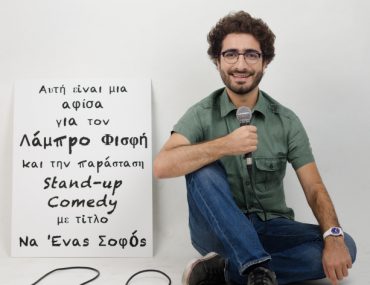 Αυτή είναι μια
αφίσα
για τον
Λάμπρο Φισφή
και την παράσταση
Stand-up
Comedy
με τίτλο
Να Ένας Σοφός